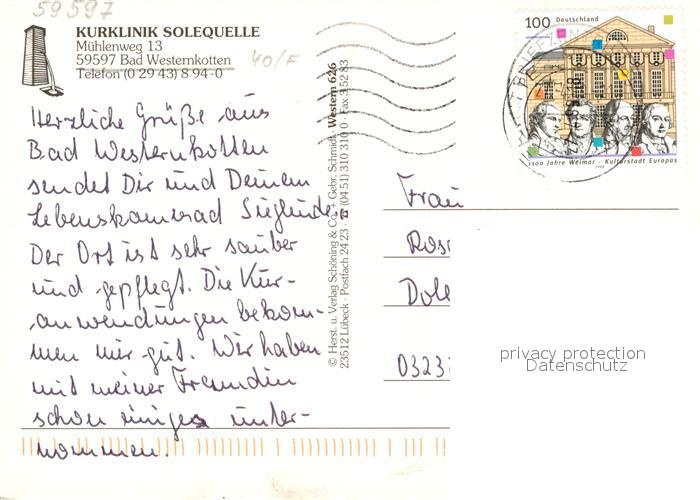 59597
KURKLINIK SOLEQUELLE
Mühlenweg 13
59597 Bad Westernkotten
Telefon (0 29 43) 8 94-0
40/F
Herzliche Grüße aus
Bad Westernkotten
sendet Dir und Deinem
Lebenskamerad Sieglinde.
Der Ort ist sehr sauber
und gepflegt. Die Kur-
anwendungen bekom-
men mir gut. Wir haben
mit meiner Freundin
schon einiges unter-
nommen.
© Herst. u. Verlag Schöning & Co. + Gebr. Schmidt · Western 626
23512 Lübeck · Postfach 24 23 · ☎ (04 51) 310 310 0 · Fax 3 52 83
100 Deutschland
1100 Jahre Weimar - Kulturstadt Europas
1999
Frau
Rosi
Dole
0323
privacy protection
Datenschutz